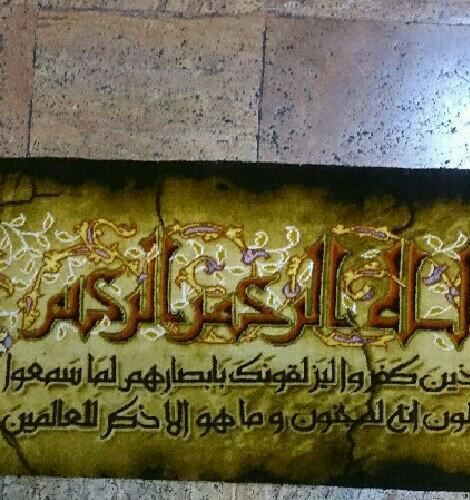 الله الرحمن الرحيم
ذين كفروا ليزلقونك بابصارهم لما سمعوا
لون انه لمجنون و ما هو الا ذكر للعالمين